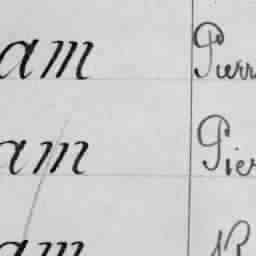 am Pierr
am Pier
am